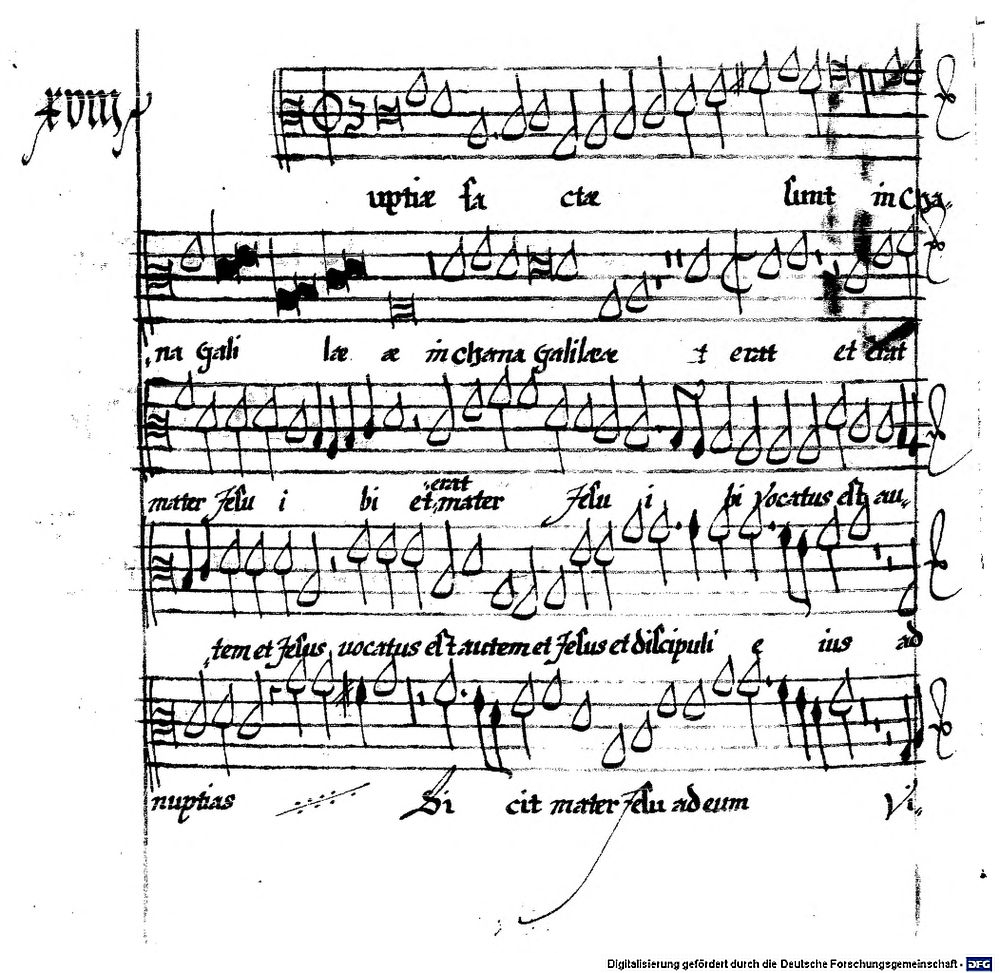 xviij
uptiæ fa ctæ sunt in Cha
na Gali læ æ in chana Galilææ t erat et erat
mater Jesu i bi et erat mater Jesu i bi Vocatus est au
tem et Jesus vocatus est autem et Jesus et discipuli e ius ad
nuptias Di cit mater Jesu ad eum Vi
Digitalisierung gefördert durch die Deutsche Forschungsgemeinschaft - DFG